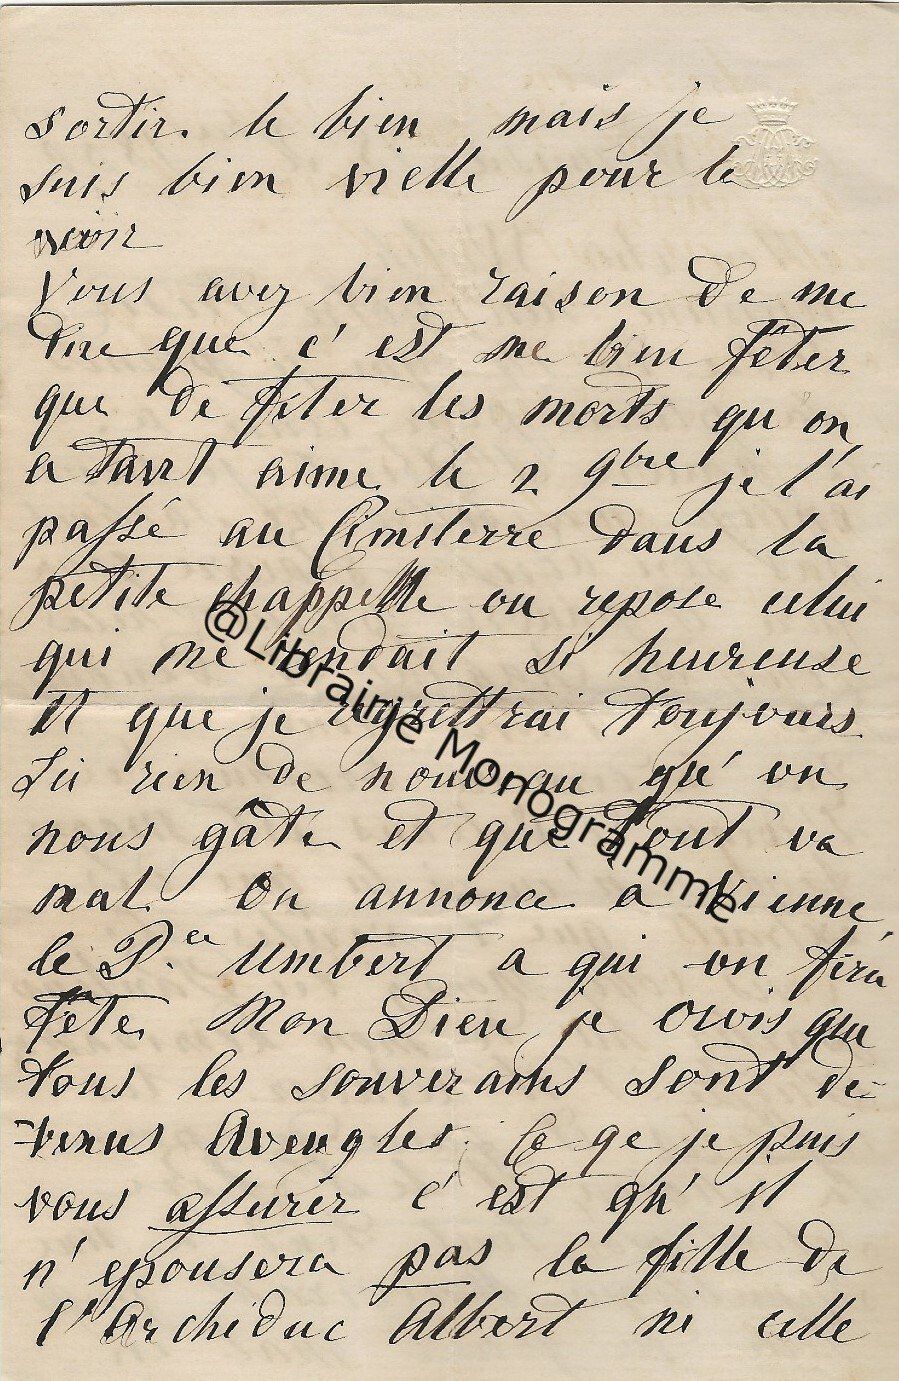 sortir le bien mais je
suis bien vielle pour le
voir
Vous avez bien raison de me
dire que c'est me bien fêter
que de fêter les morts qu'on
a tant aimé le 2 9bre je l'ai
passé au Cimeterre dans la
petite chappelle ou repose celui
qui me rendait si heureuse
et que je regrettrai toujours
Ici rien de nouveau qu'on
nous gâte et que tout va
mal. On annonce a Vienne
le P.ce Umbert a qui on fera
fête Mon Dieu je crois que
tous les souverains sont de-
-venus Aveugles. Ce qe je puis
vous assurer c'est qu'il
n'epousera pas la fille de
l'Archiduc Albert ni celle
@Librairie Monogramme